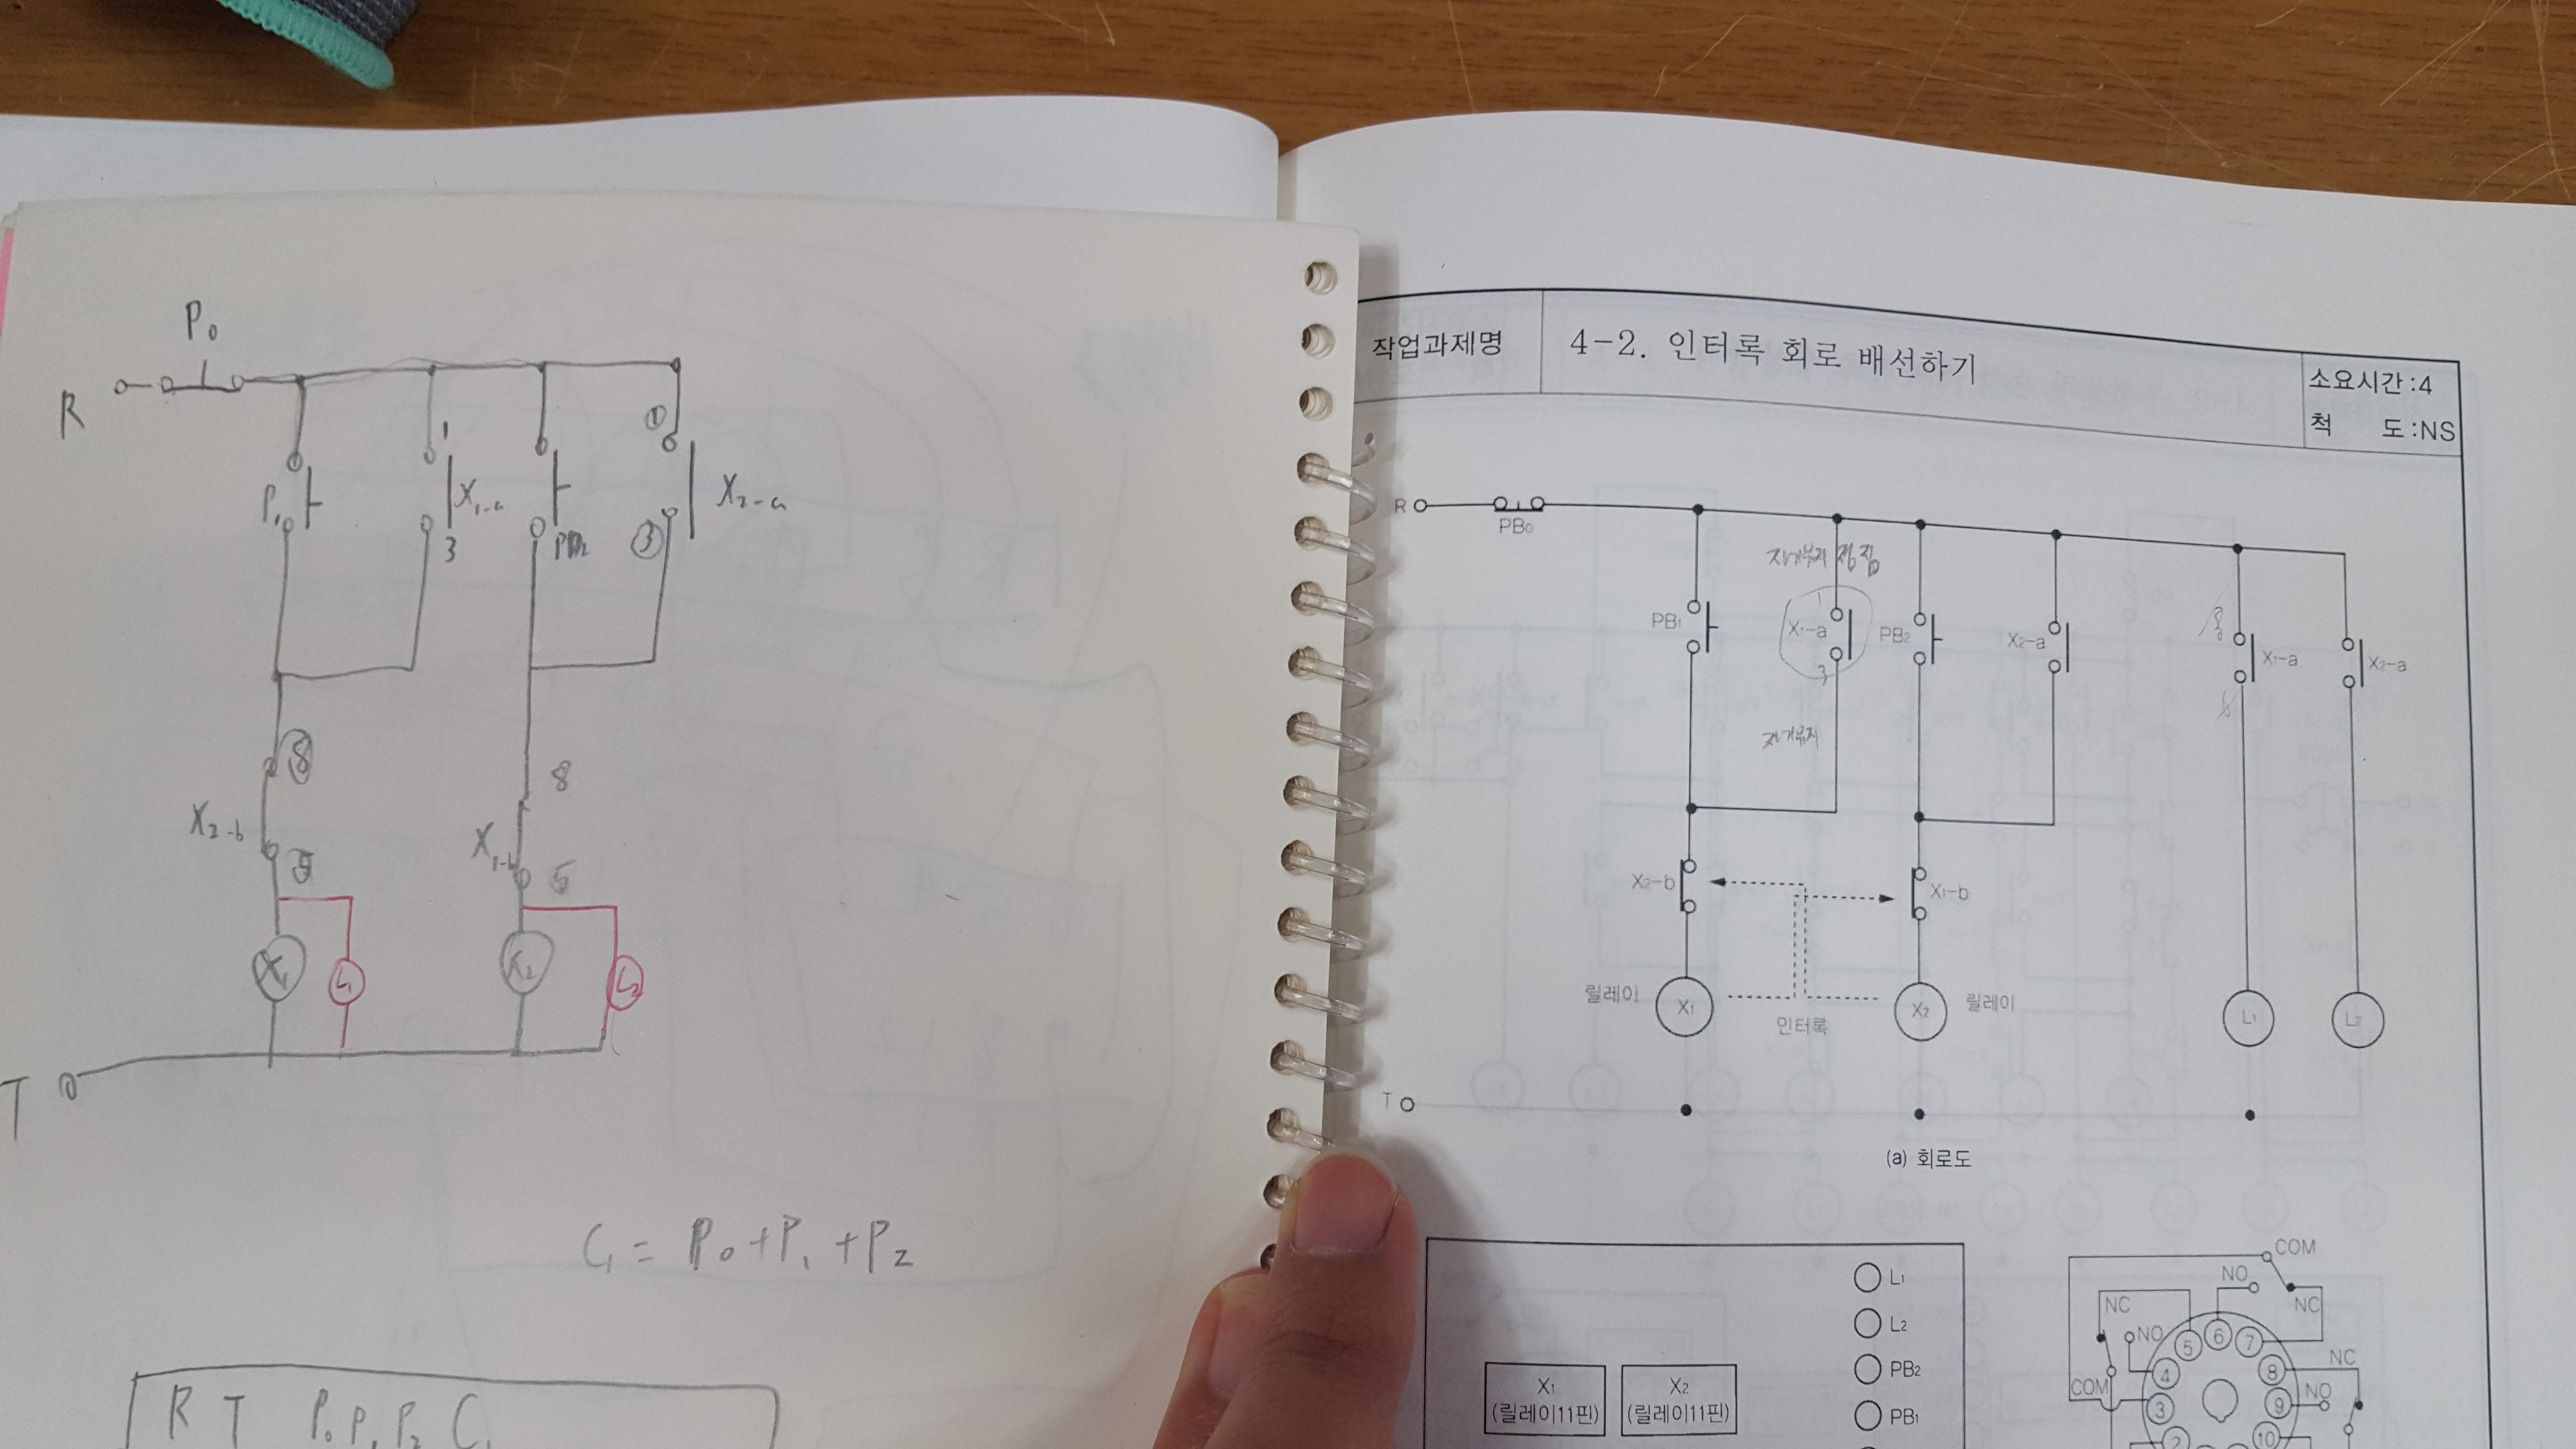 P₀
R
1
①
P₁
X₁-a
X₂-a
3
PB₂
③
⑧
8
X₂-b
X₁-b
5
5
X₁
L₁
X₂
L₂
T
C₁ = P₀ + P₁ + P₂
R T P₀ P₁ P₂ C₁
작업과제명
4-2. 인터록 회로 배선하기
소요시간 : 4
척 도 : NS
R
PB₀
자기유지 접점
1
PB₁
X₁-a
PB₂
X₂-a
8
X₁-a
X₂-a
3
6
자기유지
X₂-b
X₁-b
릴레이
X₁
인터록
X₂
릴레이
L₁
L₂
T
(a) 회로도
L₁
L₂
PB₂
PB₁
X₁
(릴레이11핀)
X₂
(릴레이11핀)
COM
NO
NC
NC
NO
5
6
7
4
8
NC
COM
3
9
NO
2
10